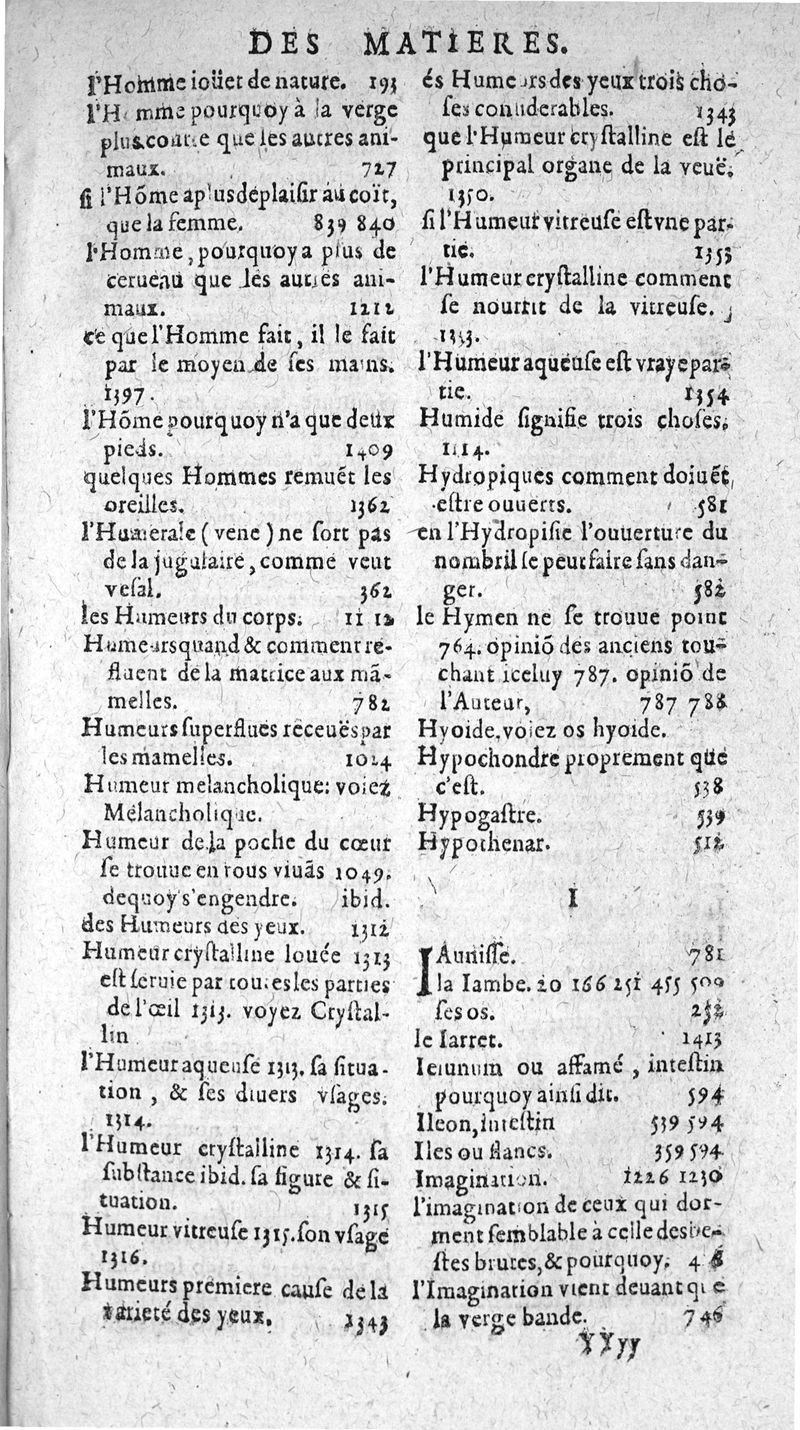 DES MATIERES.
l'Homme ioüet de nature. 193
l'Homme pourquoy à la verge
plus courte que les autres ani-
maux. 727
si l'Hõme a plus de plaisir au coït,
que la femme. 839 840
l'Homme, pourquoy a plus de
cerueau que les autres ani-
maux. 1212
ce que l'Homme fait, il le fait
par le moyen de ses mains.
1397.
l'Hõme pourquoy n'a que deux
pieds. 1409
quelques Hommes remuẽt les
oreilles. 1362
l'Humerale (vene) ne sort pas
de la jugulaire, comme veut
vesal. 362
les Humeurs du corps. 11 12
Humeurs quand & comment re-
fluent de la matrice aux mã-
melles. 782
Humeurs superflues receuës par
les mamelles. 1024
Humeur melancholique: voiez
Mélancholique.
Humeur de la poche du cœur
se trouue en tous viuãs 1049.
dequoy s'engendre. ibid.
des Humeurs des yeux. 1312
Humeur crystalline louée 1313
est seruie par toutes les parties
de l'œil 1313. voyez Crystal-
lin
l'Humeur aqueuse 1313. sa situa-
tion, & ses diuers vsages.
1314.
l'Humeur crystalline 1314. sa
substance ibid. sa figure & si-
tuation. 1315
Humeur vitreuse 1315. son vsage
1316.
Humeurs premiere cause de la
varieté des yeux. 1343
és Humeurs des yeux trois cho-
ses considerables. 1343
que l'Humeur crystalline est le
principal organe de la veuë.
1350.
si l'Humeur vitreuse est vne par-
tie. 1353
l'Humeur crystalline comment
se nourrit de la vitreuse.
1353.
l'Humeur aqueuse est vraye par-
tie. 1354
Humide signifie trois choses.
1114.
Hydropiques comment doiuẽt
estre ouuerts. 581
en l'Hydropisie l'ouuerture du
nombril se peut faire sans dan-
ger. 582
le Hymen ne se trouue point
764. opiniõ des anciens tou-
chant iceluy 787. opiniõ de
l'Auteur, 787 788
Hyoide, voiez os hyoide.
Hypochondre proprement que
c'est. 538
Hypogastre. 539
Hypothenar. 512
I
IAunisse. 781
la Iambe. 20 166 251 455 509
ses os. 252
le Iarret. 1413
Ieiunum ou affamé, intestin
pourquoy ainsi dit. 594
Ileon, intestin 539 594
Iles ou flancs. 359 594
Imagination. 1226 1230
l'imagination de ceux qui dor-
ment semblable à celle des be-
stes brutes, & pourquoy.
l'Imagination vient deuant que
la verge bande. 746
YYyy